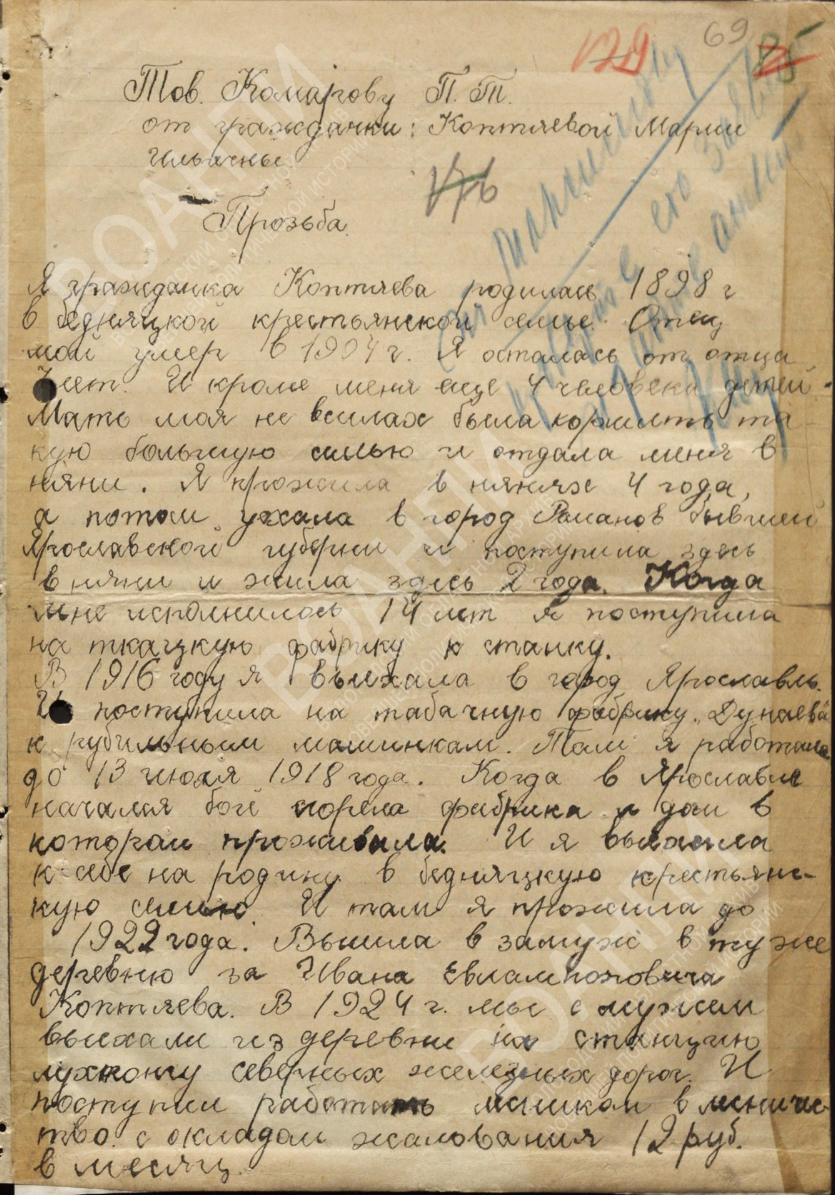 69
179
Тов. Комарову П. Т.
от гражданки: Коптяевой Марии
Ильиничны
176
Прозьба.
Я гражданка Коптяева родилась 1898 г
в бедняцкой крестьянской семье Отец
мой умер в 1904 г. Я осталась от отца
лет. И кроме меня еще 4 человека детей.
Мать моя не всилах была кормить та
кую большую симью и отдала меня в
няни. Я прожила в няних 4 года,
а потом уехала в город Раманов бывшей
Ярославской губерни и поступила здесь
в няни и жила здесь 2 года. Когда
мне исполнилось 14 лет я поступила
на ткацкую фабрику к станку.
В 1916 году я выехала в город Ярославль.
И поступила на табачную фабрику Дунаева
к рубильным машинкам. Там я работала
до 13 июля 1918 года. Когда в Ярославле
начался бой згорела фабрика и дом в
котором проживала. И я выехала
к себе на родину в бедняцкую крестьянс-
кую семью. И там я прожила до
1922 года. Вышла в замуж в туже
деревню за Ивана Евлампоховича
Коптяева. В 1924 г. мы с мужем
выехали из деревни на станцию
северных железных дорог. И
поступил работать
с окладом жалования 12 руб.
в месяц.
ВОАНПИ